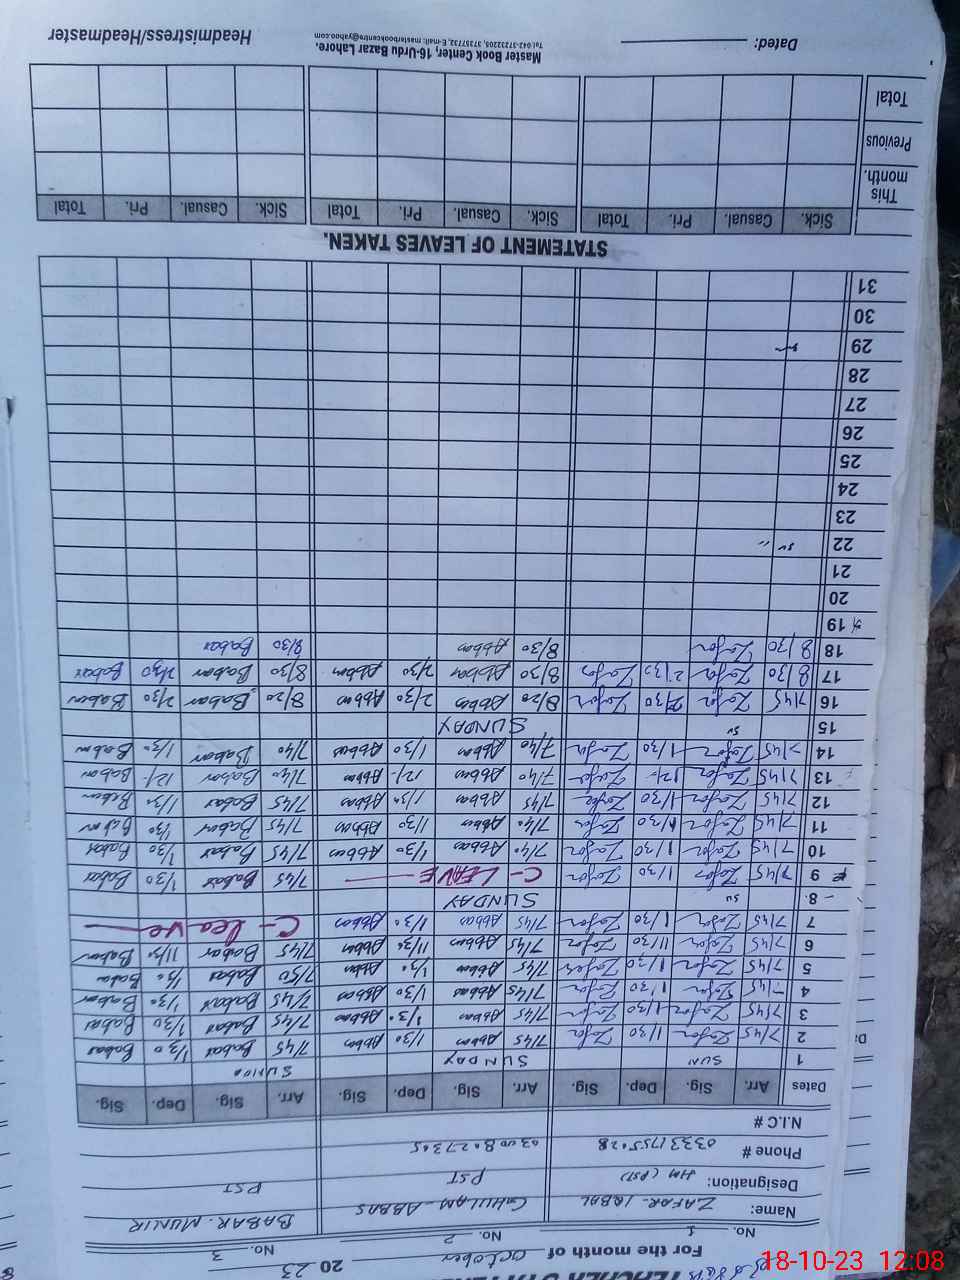 For the month of October 2023
No. 1 No. 2 No. 3
Name: ZAFAR-IQBAL GHULAM-ABBAS BABAR. MUNIR
Designation: HM (PST) PST PST
Phone #
N.I.C #
Dates Arr. Sig. Dep. Sig. Arr. Sig. Dep. Sig. Arr. Sig. Dep. Sig.
1 SUN SUNDAY
2 7/45 Zafar 1/30 Zafar 7/45 Abbas 1/30 Abbas 7/45 Babar 1/30 Babar
3 7/45 Zafar 1/30 Zafar 7/45 Abbas 1/30 Abbas 7/45 Babar 1/30 Babar
4 7/45 Zafar 1/30 Zafar 7/45 Abbas 1/30 Abbas 7/45 Babar 1/30 Babar
5 7/45 Zafar 1/30 Zafar 7/45 Abbas 1/30 Abbas 7/50 Babar 1/30 Babar
6 7/45 Zafar 11/30 Zafar 7/45 Abbas 11/30 Abbas 7/45 Babar 11/30 Babar
7 7/45 Zafar 1/30 Zafar 7/45 Abbas 1/30 Abbas C-Leave
8 SU SUNDAY
9 7/45 Zafar 1/30 Zafar C-LEAVE 7/45 Babar 1/30 Babar
10 7/45 Zafar 1/30 Zafar 7/40 Abbas 1/30 Abbas 7/45 Babar 1/30 Babar
11 7/45 Zafar 1/30 Zafar 7/40 Abbas 1/30 Abbas 7/45 Babar 1/30 Babar
12 7/45 Zafar 1/30 Zafar 7/45 Abbas 1/30 Abbas 7/45 Babar 1/30 Babar
13 7/45 Zafar 12/- Zafar 7/40 Abbas 12/- Abbas 7/40 Babar 12/- Babar
14 7/45 Zafar 1/30 Zafar 7/40 Abbas 1/30 Abbas 7/40 Babar 1/30 Babar
15 SU SUNDAY
16 7/45 Zafar 2/30 Zafar 8/20 Abbas 2/30 Abbas 8/20 Babar 2/30 Babar
17 8/30 Zafar 2/30 Zafar 8/30 Abbas 2/30 Abbas 8/30 Babar 2/30 Babar
18 8/30 Zafar 8/30 Abbas 8/30 Babar
19
20
21
22 SU
23
24
25
26
27
28
29
30
31
STATEMENT OF LEAVES TAKEN.
Sick. Casual. Pri. Total Sick. Casual. Pri. Total Sick. Casual. Pri. Total
This month.
Previous
Total
Master Book Center, 16-Urdu Bazar Lahore.
Dated: Headmistress/Headmaster
18-10-23 12:08